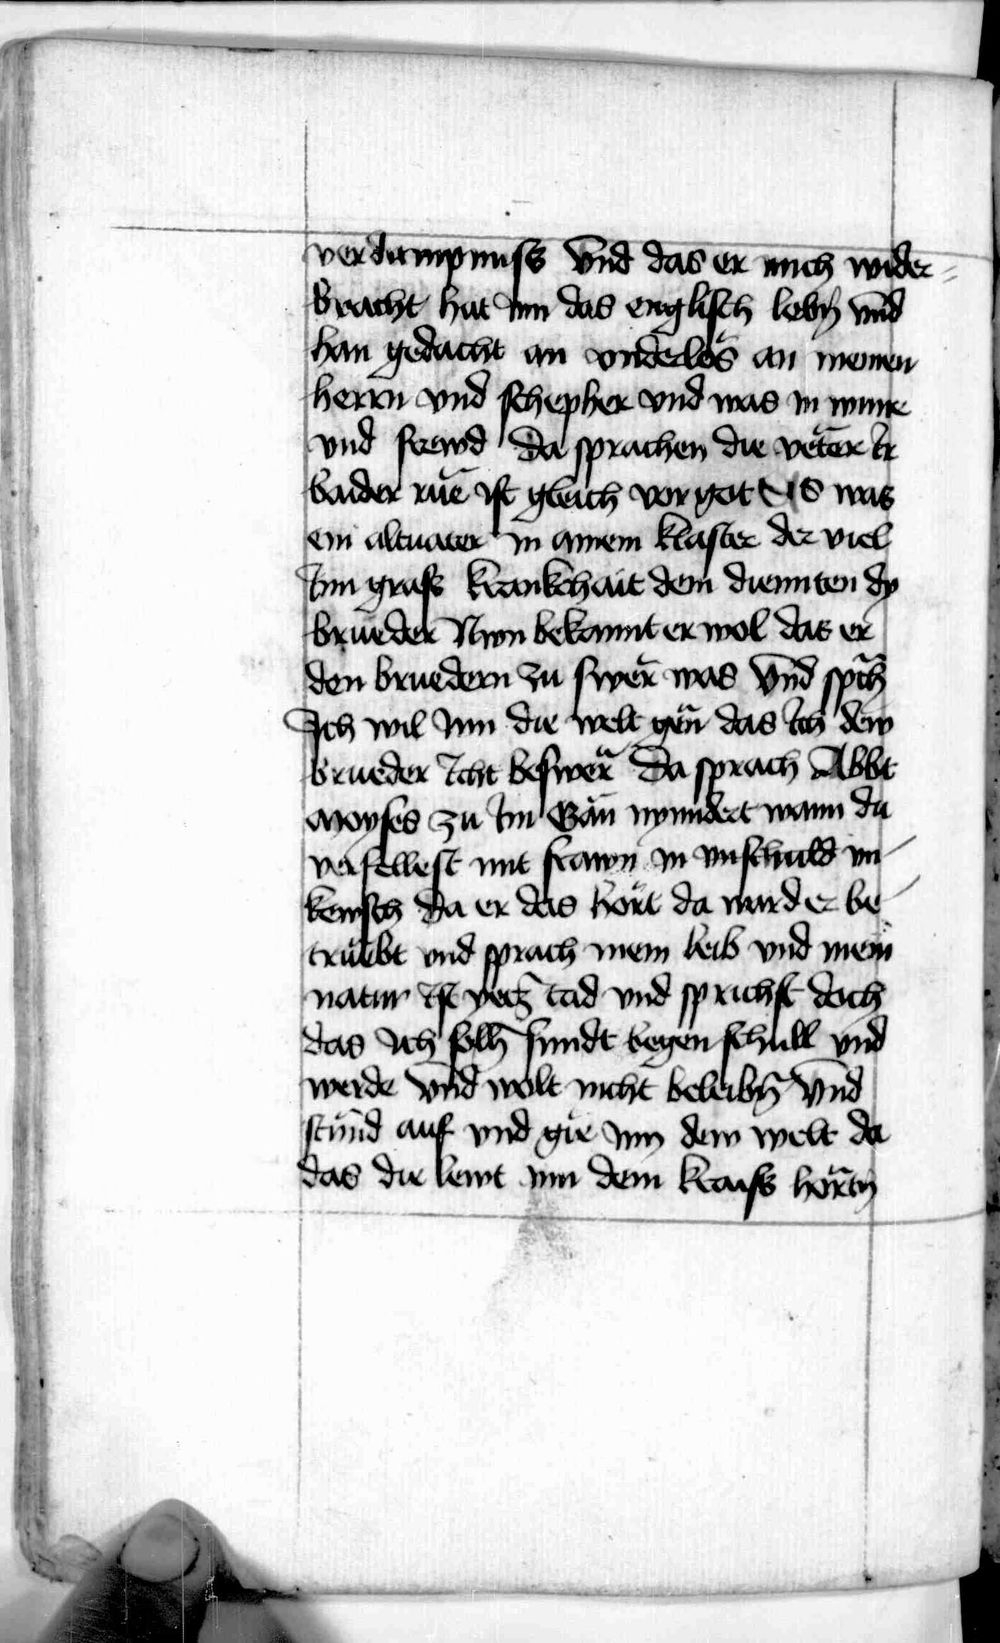 verdampnuss Vnd das er mich wider=
bracht hat Inn das englisch lebn̄ vnd
han gedacht an vnderlos an meinen
herrn vnd schepher vnd was in wune
vnd frewd Da sprachen die veter Ir
baider rue ist gleich vor got Es was
ein altuater in ainem klaster der viel
Inn grass krankchait dem diennten dy
brueder Nwn bekannt er wol das er
den bruedern zu swer was Vnd sp̄ch
Ich wil Inn die welt gen das Ich dew
brueder Icht beswer Da sprach Abbt
Moyses zu Im Gan nyndert wann du
verfellest mit frawn in vnschuld vn-
kewsch Da er das hort da ward er be-
trůebt vnd sprach mein leib vnd mein
natur Ist yecz tad vnd sprichst doch
das Ich solh sundt begen schull vnd
werde Vnd wolt nicht beleibn̄ Vnd
stund auf vnd gie Inn dew welt da
das die lewt Inn dem kraiss hortn̄